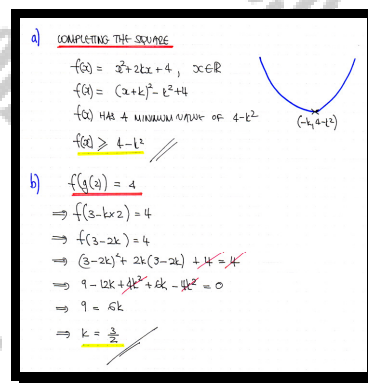 a) COMPLETING THE SQUARE
f(x) = x²+2kx+4, x∈ℝ
f(x) = (x+k)²-k²+4
f(x) HAS A MINIMUM VALUE OF 4-k²
(-k, 4-k²)
f(x) ⩾ 4-k²
b) f(g(2)) = 4
⇒ f(3-k×2) = 4
⇒ f(3-2k) = 4
⇒ (3-2k)²+ 2k(3-2k) + 4 = 4
⇒ 9 - 12k + 4k² + 6k - 4k² = 0
⇒ 9 = 6k
⇒ k = 3/2